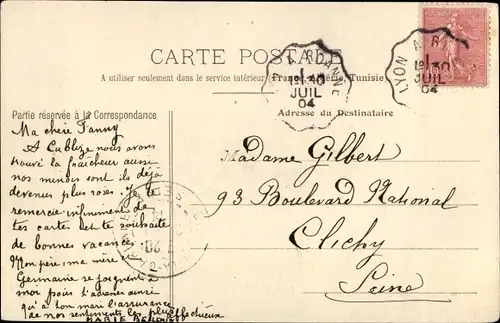 CARTE POSTALE
A utiliser seulement dans le service intérieur (France, Algérie, Tunisie
Partie réservée à la Correspondance
Adresse du Destinataire
LYON A ROANNE
1º 30
JUIL
04
LYON A R
1º 30
JUIL
04
Ma chère Fanny
A Cublize nous avons
trouvé la fraîcheur aussi
nos minois sont ils déjà
devenus plus roses. Je te
remercie infiniment de
tes cartes et te souhaite
de bonnes vacances.
Mon père, ma mère
Germaine se joignent
moi pour t'adresser ainsi
qu'à ton mari l'assurance
de nos sentiments les plus affectueux
MARIE
Madame Gilbert
93 Boulevard National
Clichy
Seine